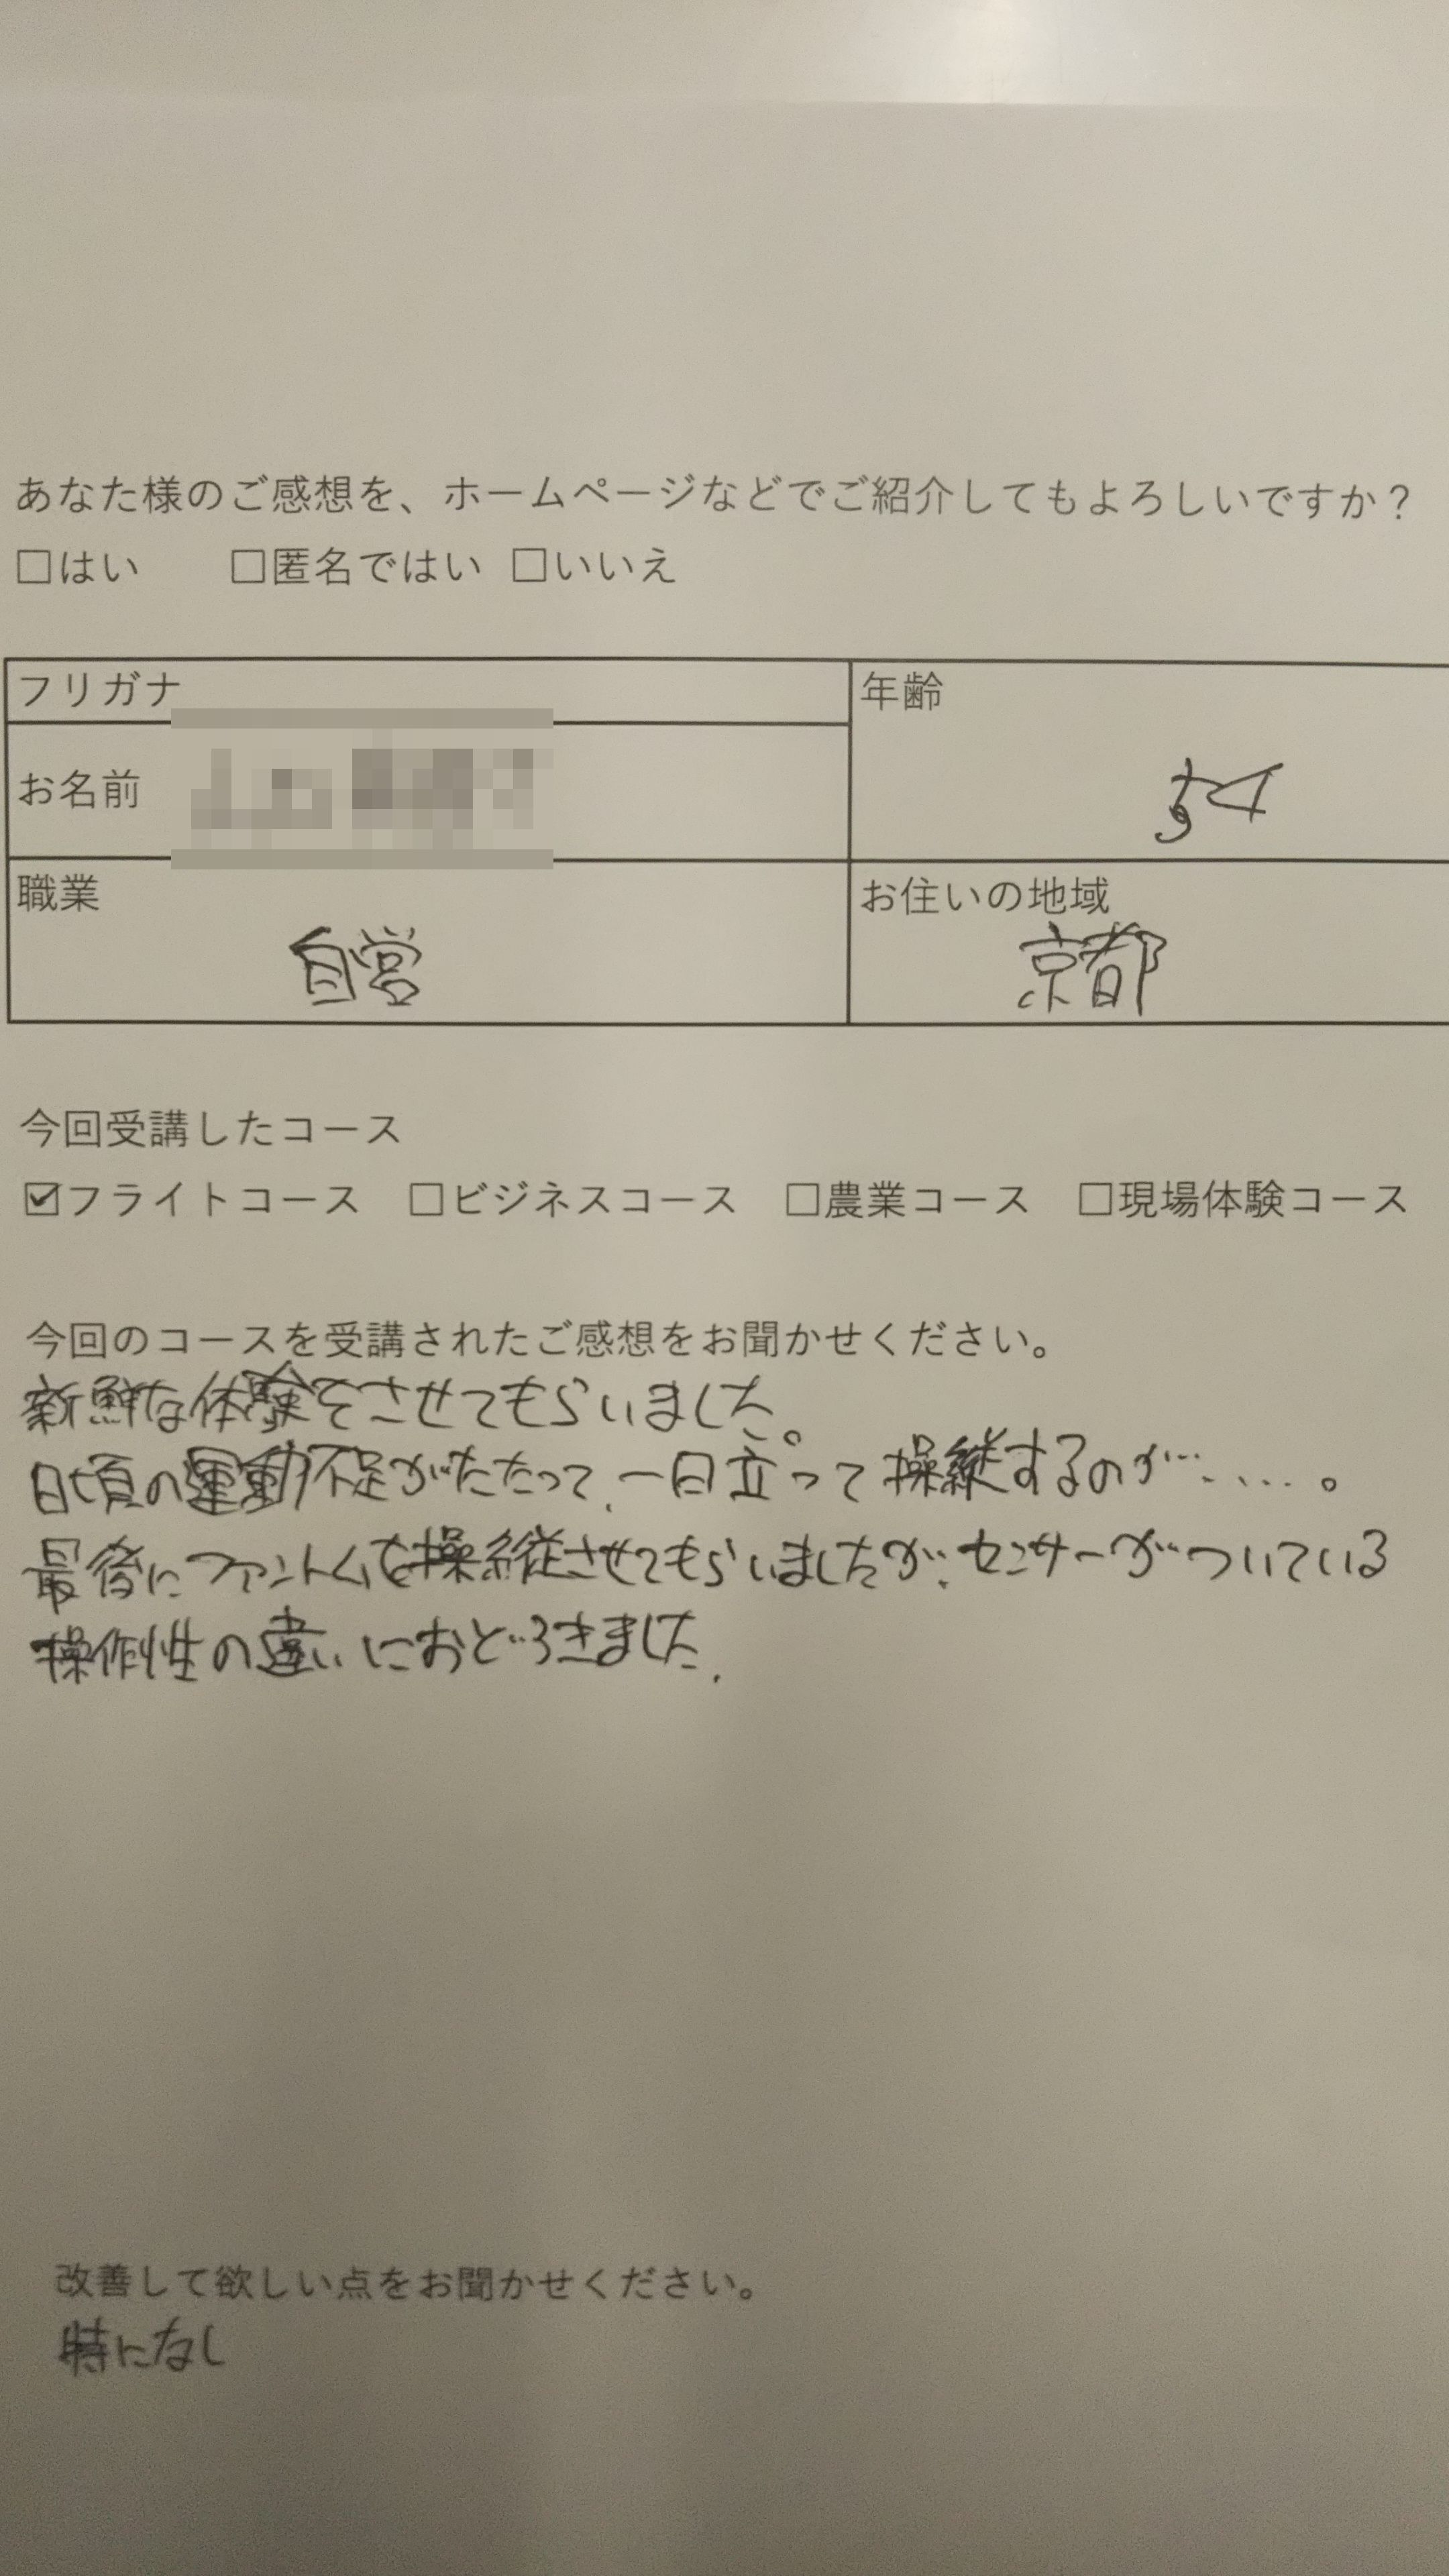 あなた様のご感想を、ホームページなどでご紹介してもよろしいですか？
□はい □匿名ではい □いいえ
フリガナ
年齢
お名前
54
職業
お住いの地域
自営
京都
今回受講したコース
☑フライトコース □ビジネスコース □農業コース □現場体験コース
今回のコースを受講されたご感想をお聞かせください。
新鮮な体験をさせてもらいました。
日頃の運動不足がたたって、一日立って操縦するのが……。
最後にファントムを操縦させてもらいましたが、センサーがついている
操作性の違いにおどろきました.
改善して欲しい点をお聞かせください。
特になし